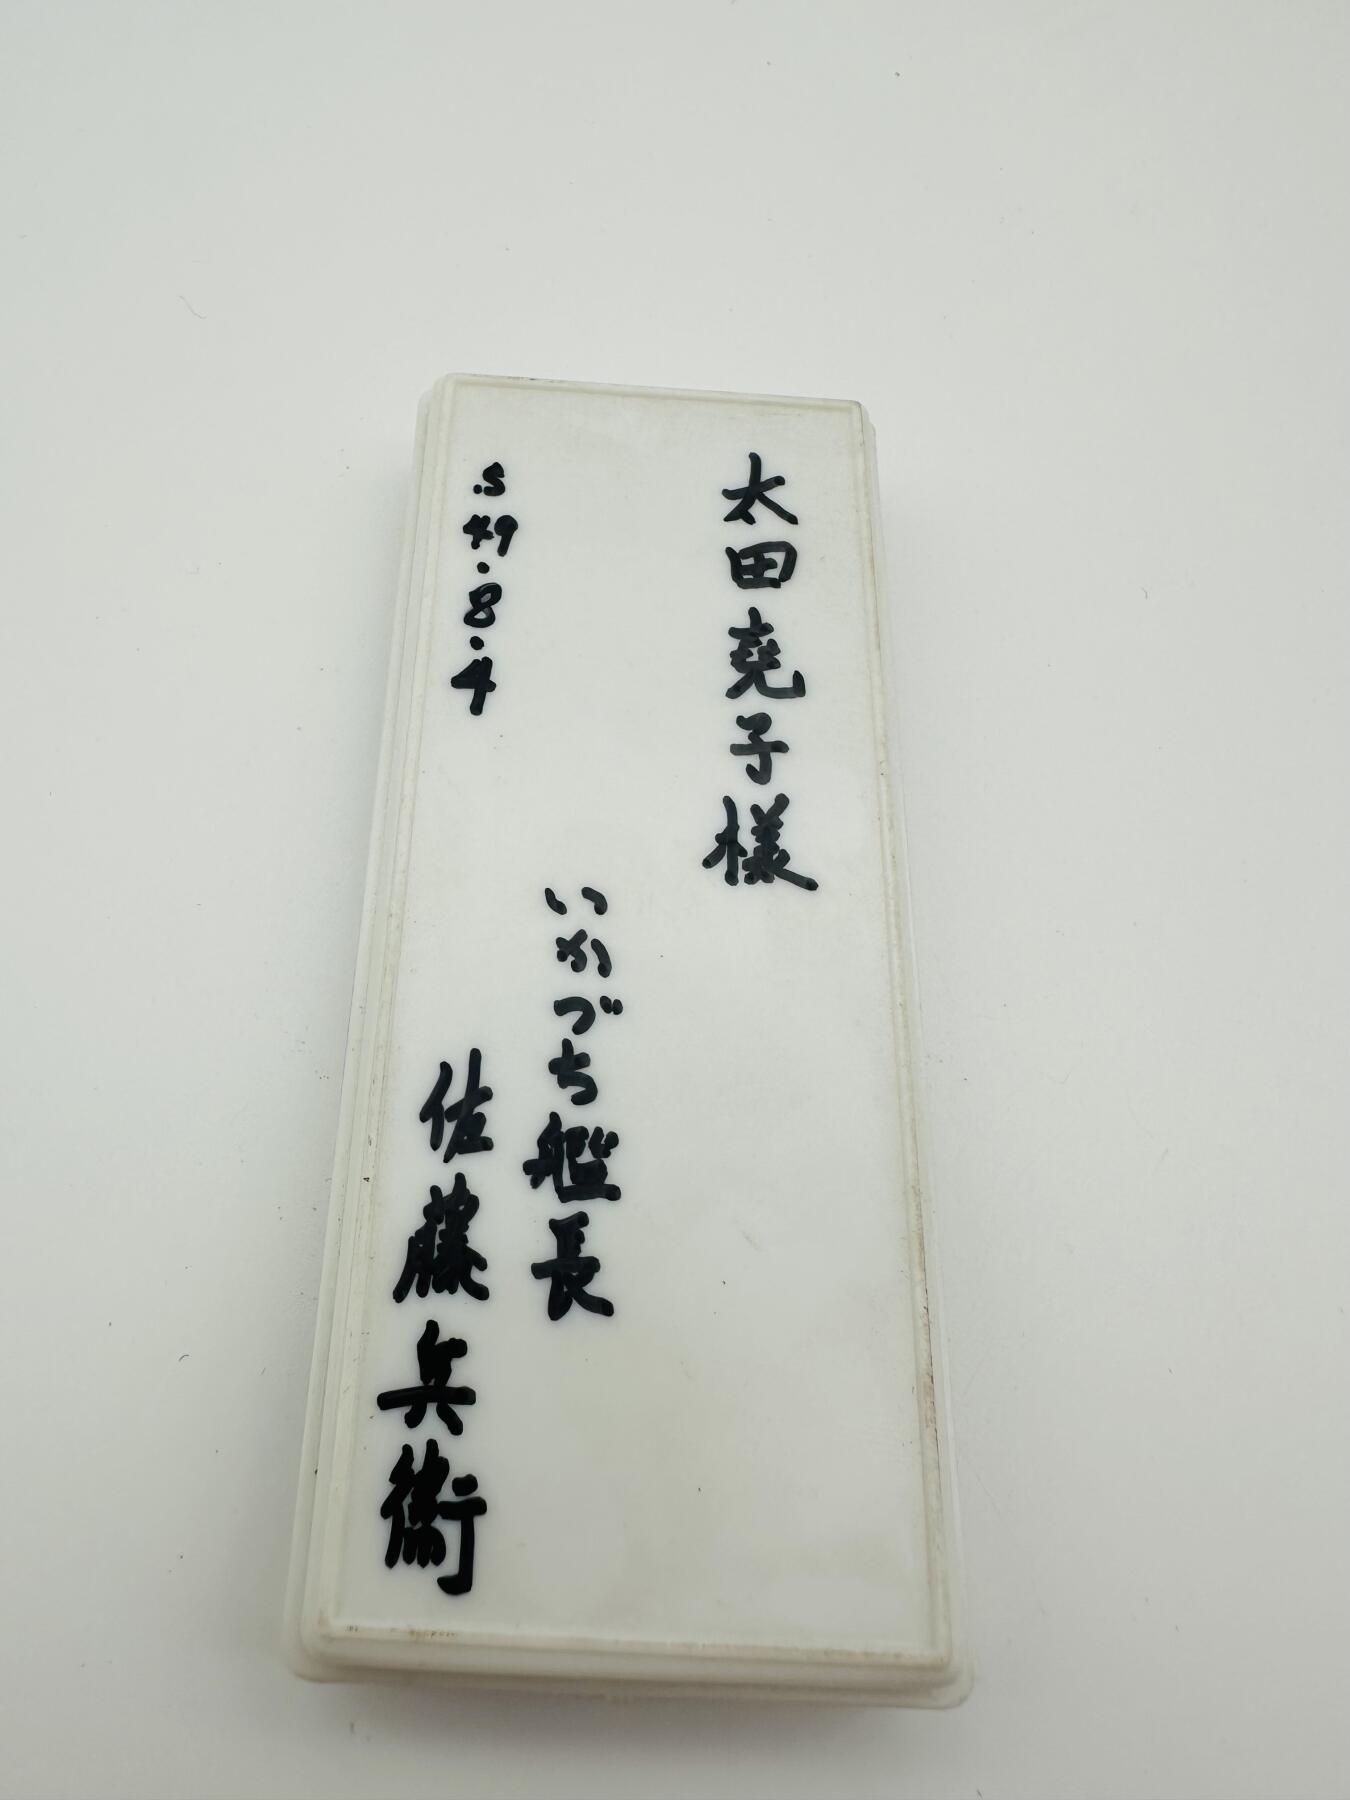 太田堯子様
いかづち艦長
佐藤兵衛
S49.8.4